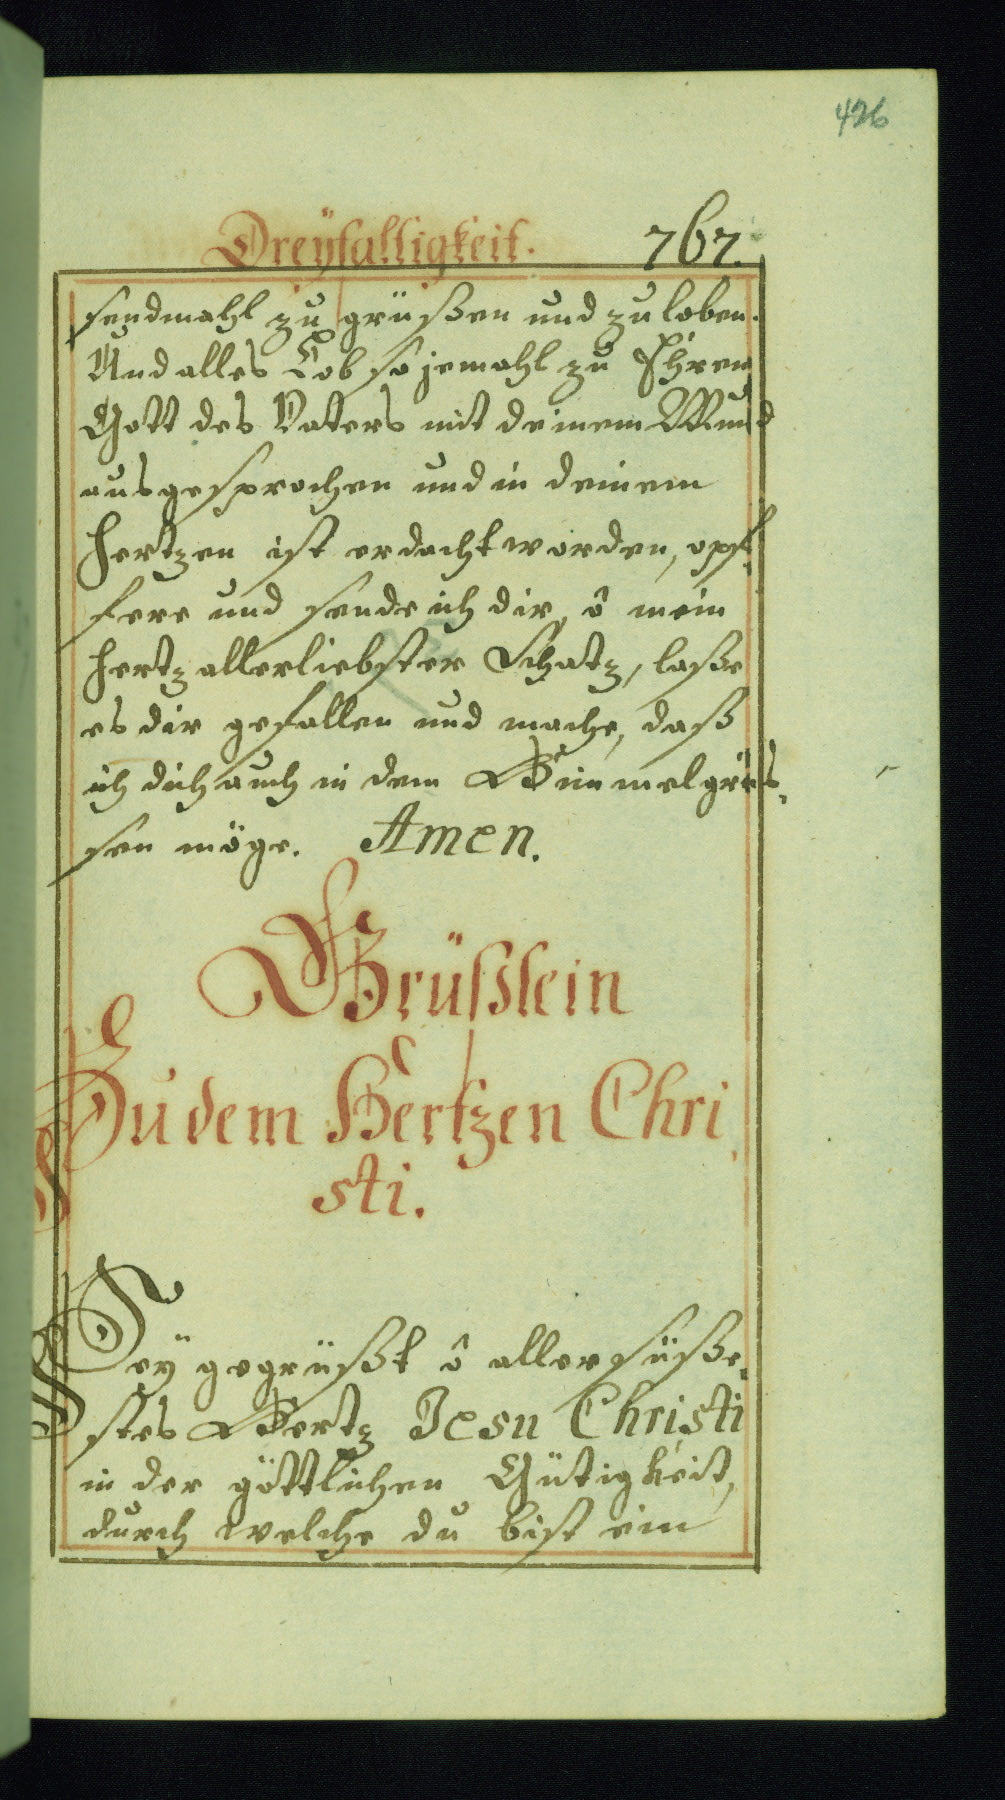 426
Dreyfalligkeit. 767.
sendmahl zu grüßen und zu loben.
Und alles Lob so jemahl zu Ehren
Gott des Vaters mit deinem Mund
ausgesprochen und in deinem
Hertzen ist erdacht worden, opf,
fere und sende ich dir, ô mein
Hertz allerliebster Schatz, lasse
es dir gefallen und mache, daß
ich dich auch in dem Himmel grüs,
sen möge. Amen.
Grüßlein
Zu dem Hertzen Chri,
sti.
Sey gegrüßt ô allersüße,
stes Hertz Jesu Christi
in der göttlichen Gütigkeit,
durch welche du bist ein